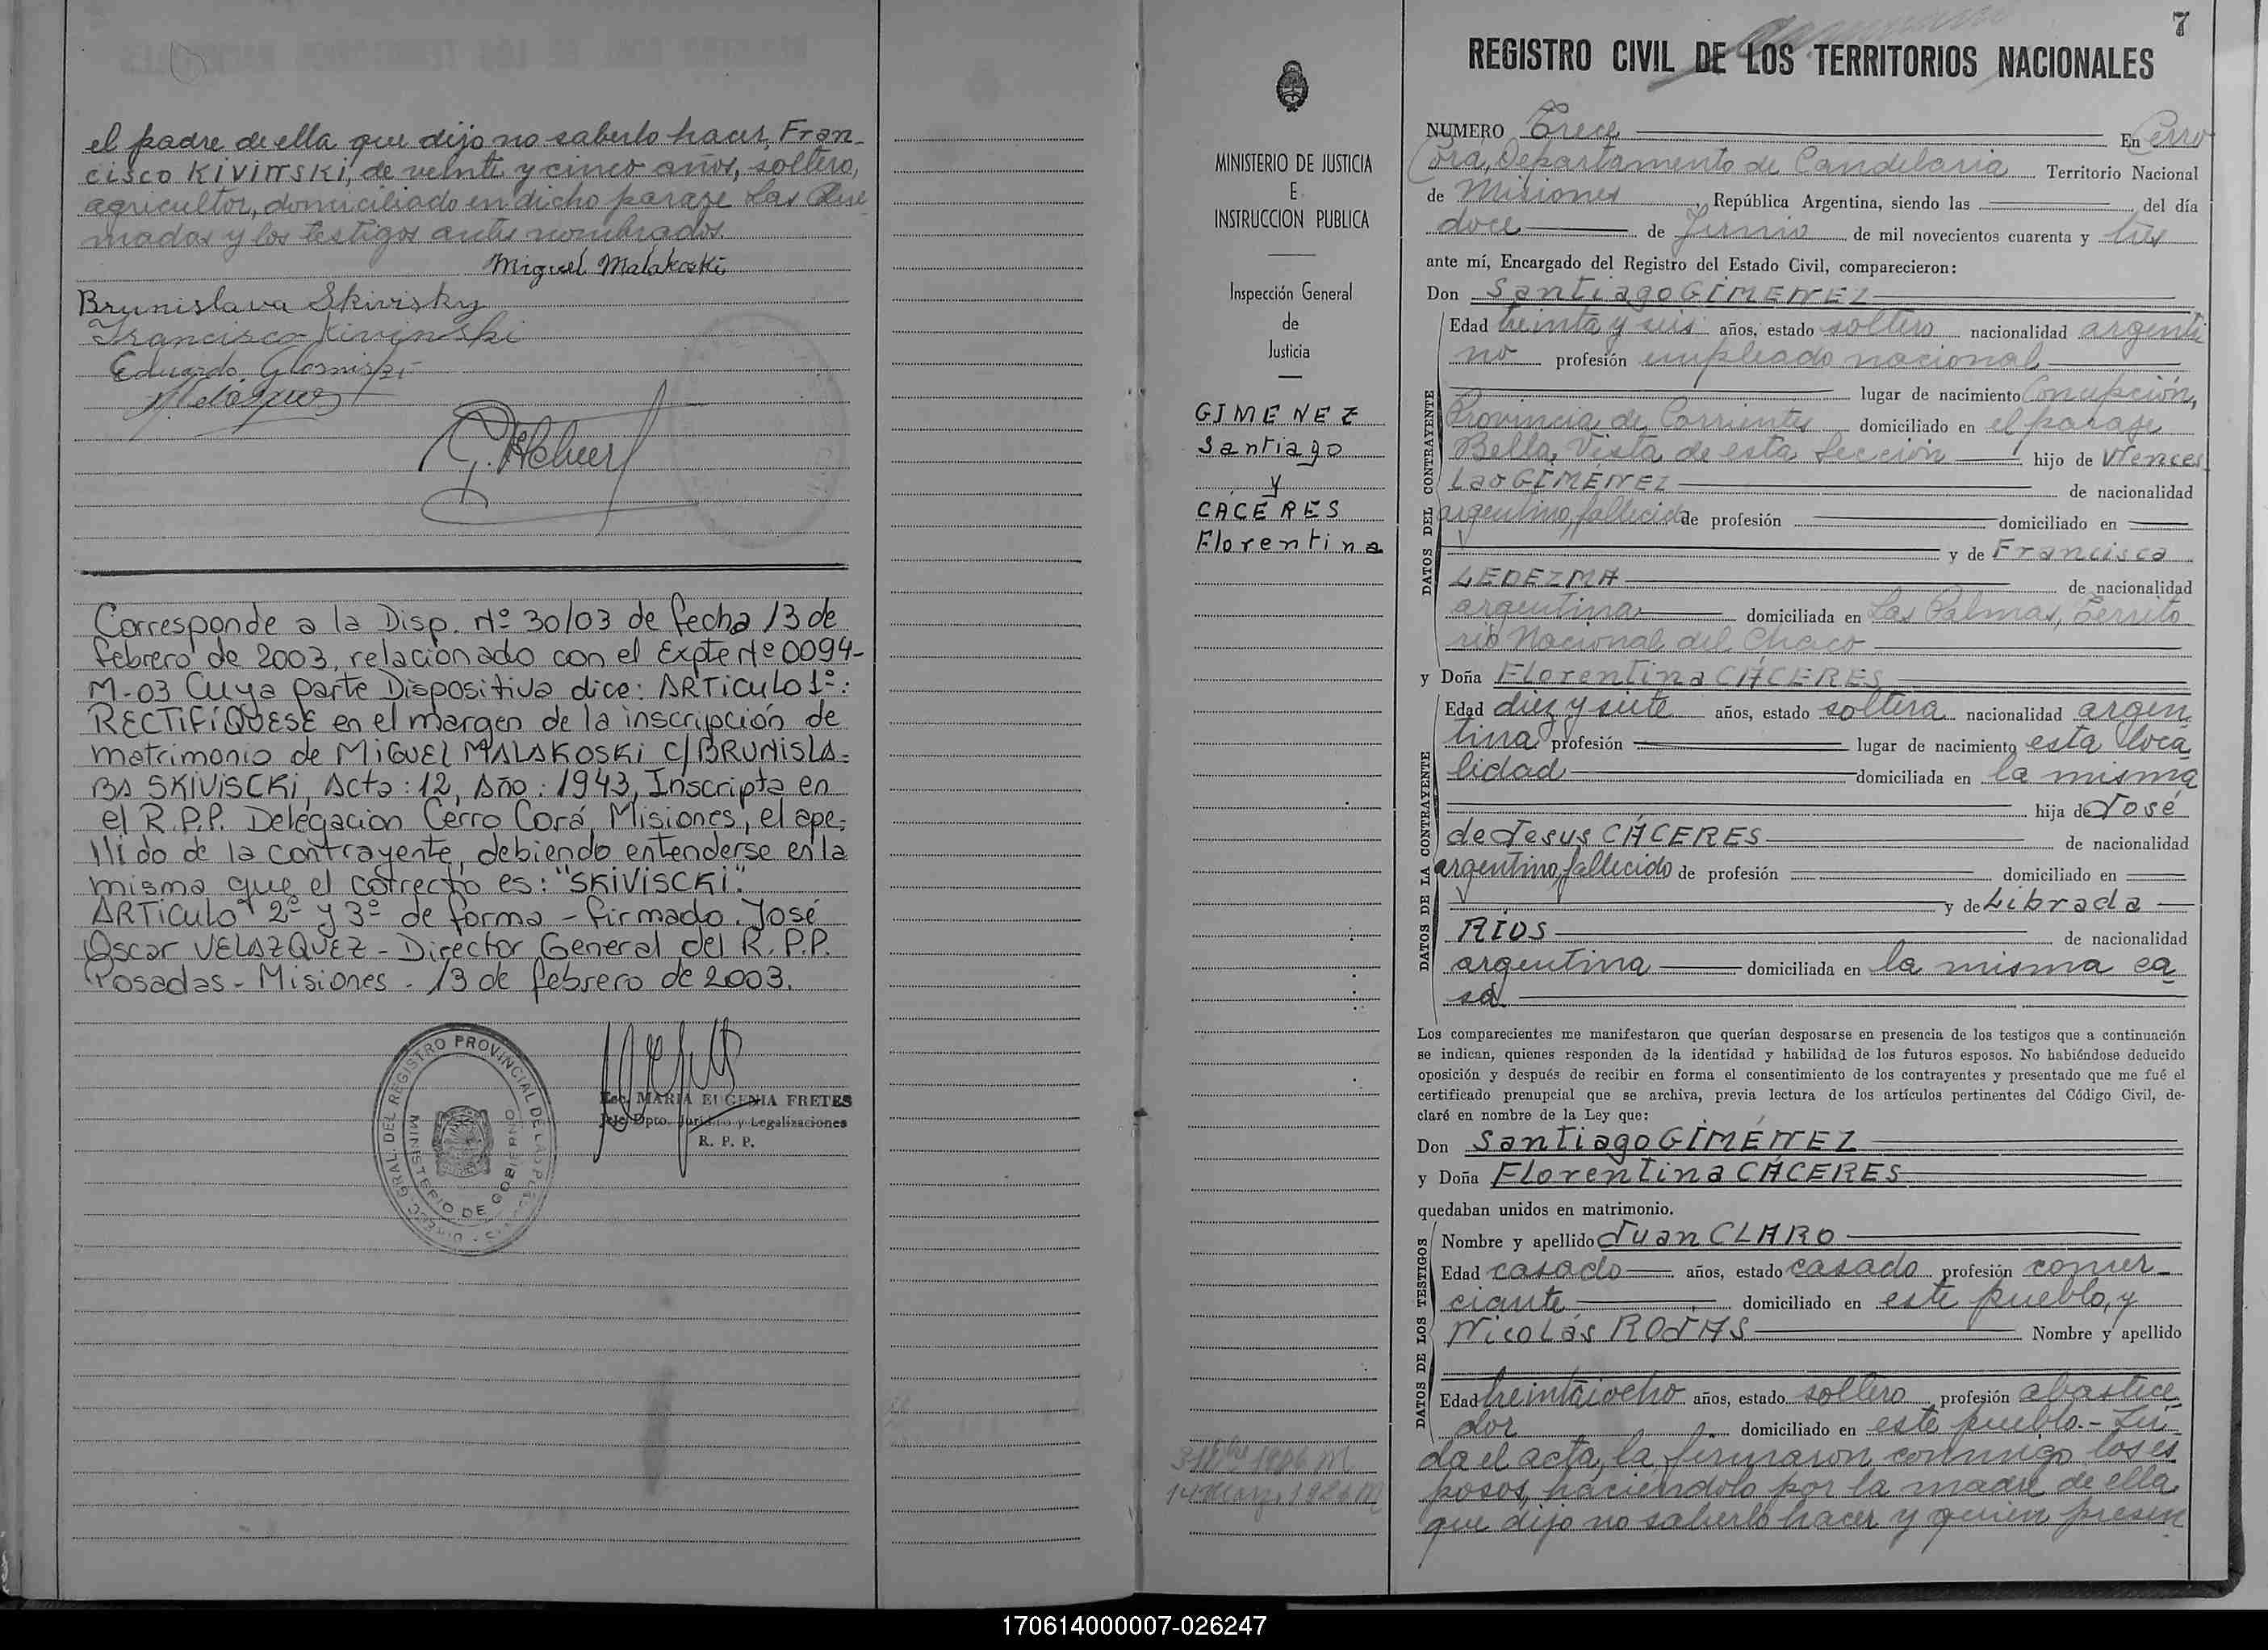 el padre de ella que dijo no saberlo hacer, Fran-
cisco KIVINSKI, de veinte y cinco años, soltero,
agricultor, domiciliado en dicho paraje Las Que
madas y los testigos antes nombrados.
Miguel Malakoski
Brunislava Skivisky
Francisco Kivinski
Eduardo
Corresponde a la Disp. Nº 30/03 de fecha 13 de
febrero de 2003, relacionado con el Expte Nº 0094-
M-03 Cuya parte Dispositiva dice: ARTICULO 1º:
RECTIFÍQUESE en el margen de la inscripción de
matrimonio de MIGUEL MALAKOSKI C/ BRUNISLA-
BA SKIVISCKI, Acta: 12, Año: 1943, Inscripta en
el R.P.P. Delegacion Cerro Corá, Misiones, el ape-
llido de la contrayente, debiendo entenderse en la
misma que el correcto es: "SKIVISCKI".
ARTICULO 2º y 3º de forma - firmado. José
Oscar VELAZQUEZ - Director General del R.P.P.
Posadas - Misiones - 13 de febrero de 2003.
DIRECC. GRAL. DEL REGISTRO PROVINCIAL DE LAS PERSONAS
MINISTERIO DE GOBIERNO
Esc. MARIA EUGENIA FRETES
Jefe Dpto. Jurídico y Legalizaciones
R. P. P.
MINISTERIO DE JUSTICIA
E
INSTRUCCION PUBLICA
Inspección General
de
Justicia
GIMENEZ
Santiago
y
CACERES
Florentina
1986 M
14 Marzo 1986 M
7
REGISTRO CIVIL DE LOS TERRITORIOS NACIONALES
NUMERO Trece En Cerro
Corá, Departamento de Candelaria Territorio Nacional
de Misiones, República Argentina, siendo las del día
doce de Junio de mil novecientos cuarenta y tres
ante mí, Encargado del Registro del Estado Civil, comparecieron:
Don Santiago GIMÉNEZ
DATOS DEL CONTRAYENTE
Edad treinta y seis años, estado soltero nacionalidad argenti
no profesión empleado nacional
lugar de nacimiento Concepción,
Provincia de Corrientes domiciliado en el paraje
Bella Vista de esta Sección hijo de Wences
Lao GIMÉNEZ de nacionalidad
argentino, fallecido de profesión domiciliado en
y de Francisca
LEDEZMA de nacionalidad
argentina domiciliada en Las Palmas, Territo
rio Nacional del Chaco
y Doña Florentina CÁCERES
DATOS DE LA CONTRAYENTE
Edad diez y siete años, estado soltera nacionalidad argen
tina profesión lugar de nacimiento esta loca
lidad domiciliada en la misma
hija de José
de Jesus CÁCERES de nacionalidad
argentino, fallecido de profesión domiciliado en
y de Librada
RÍOS de nacionalidad
argentina domiciliada en la misma ca
sa
Los comparecientes me manifestaron que querían desposarse en presencia de los testigos que a continuación
se indican, quienes responden de la identidad y habilidad de los futuros esposos. No habiéndose deducido
oposición y después de recibir en forma el consentimiento de los contrayentes y presentado que me fué el
certificado prenupcial que se archiva, previa lectura de los artículos pertinentes del Código Civil, de-
claré en nombre de la Ley que:
Don Santiago GIMÉNEZ
y Doña Florentina CÁCERES
quedaban unidos en matrimonio.
DATOS DE LOS TESTIGOS
Nombre y apellido Juan CLARO
Edad casado años, estado casado profesión comer-
ciante domiciliado en este pueblo, y
Nicolás ROJAS Nombre y apellido
Edad treintaiocho años, estado soltero profesión abastece
dor domiciliado en este pueblo.- Leí
da el acta, la firmaron conmigo los es
posos, haciéndolo por la madre de ella
que dijo no saberlo hacer y quien presen
170614000007-026247